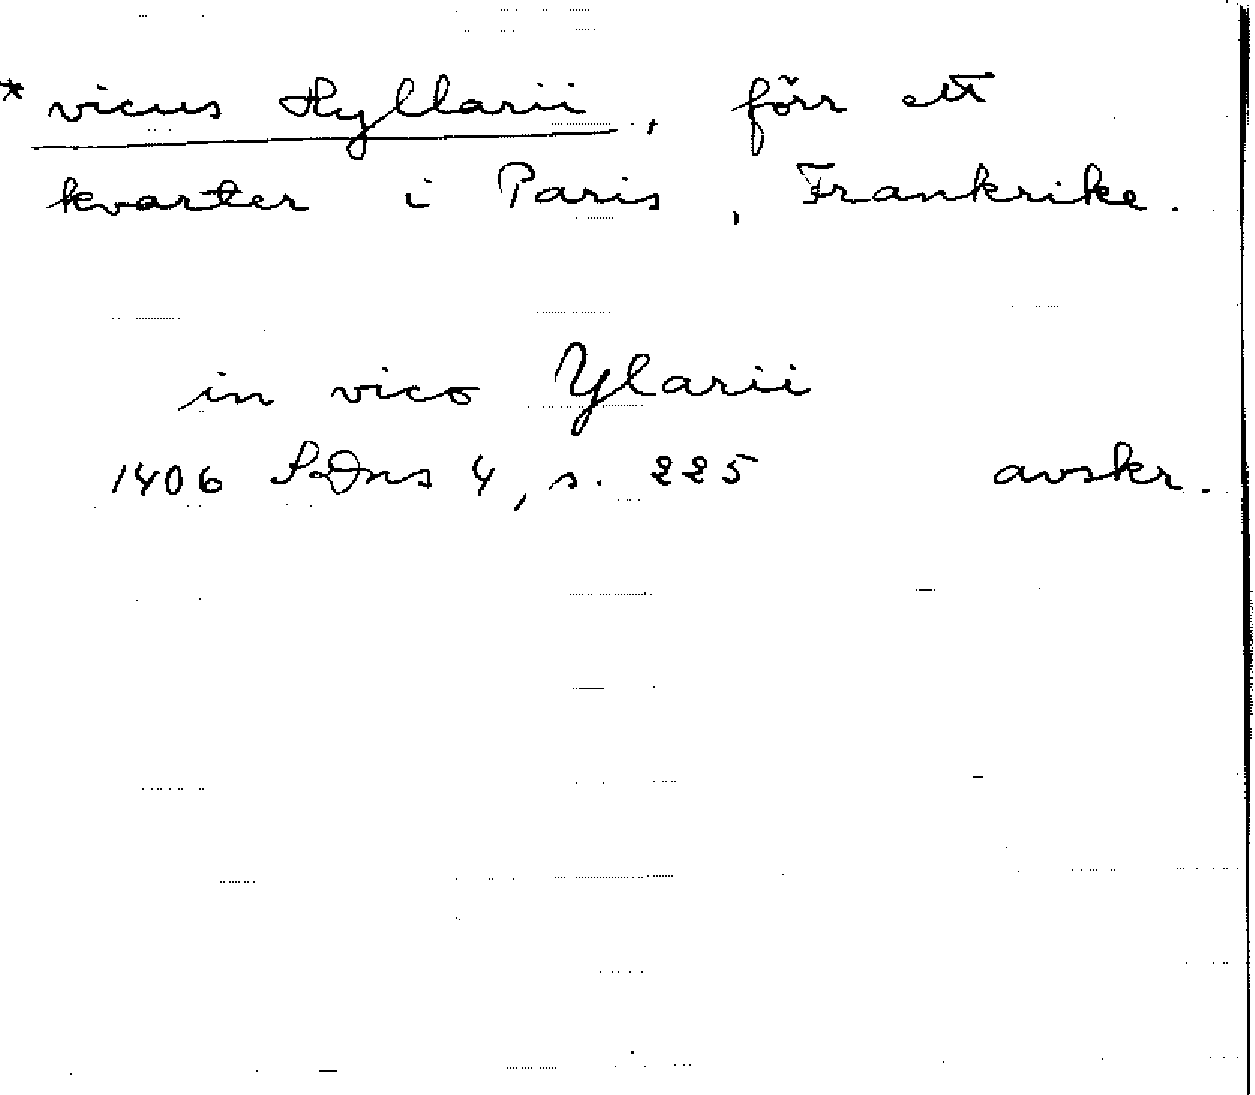 * vicus Hyllarii, förr ett
kvarter i Paris, Frankrike.
in vico Ylarii
1406 SvDns 4, s. 225 avskr.